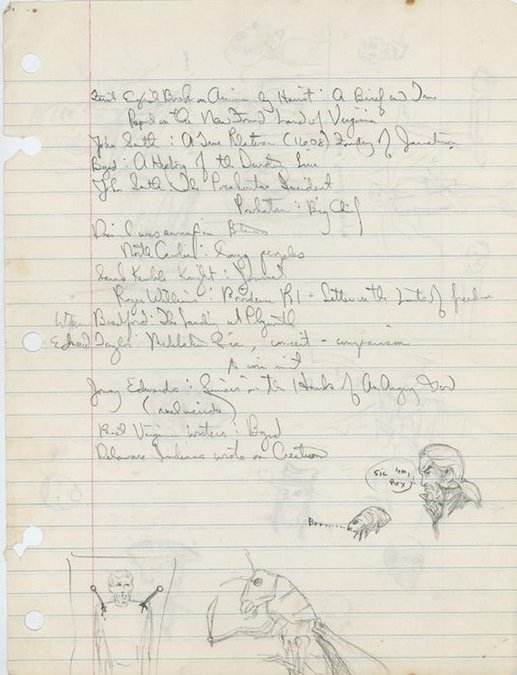 First English Book on America by Hariot : A Brief and True
Report on the New Found Land of Virginia
John Smith : A True Relation (1608) Founding of Jamestown
Byrd : A History of the Dividing Line
John Smith The Pocahontas Incident
Powhatan : Big Chief
Dismal was swamp in
North Carolina : Lazy peoples
Sarah Kemble Knight : Journal
Roger Williams : Providence R.I - Letter on the Limits of freedom
William Bradford : The Landing at Plymouth
Edward Taylor : conceit - comparison
Jony Edwards : Sinners in the Hands of An Angry God
Virginia writers : Byrd
Delaware Indians wrote on Creation
Sic 'em, Rex